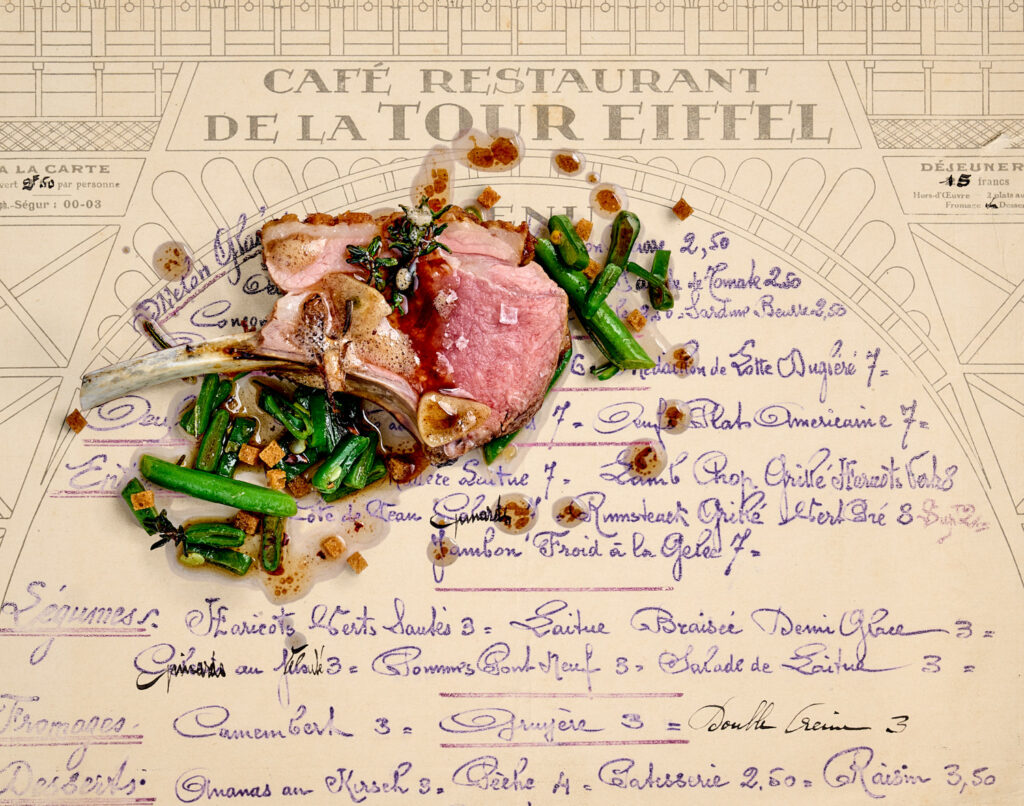 CAFÉ RESTAURANT
DE LA TOUR EIFFEL
A LA CARTE
vert 2F50 par personne
ph.-Ségur : 00-03
DÉJEUNER
15 francs
Hors-d'Œuvre 2 plats au
Fromage Desse
MENU
Melon Glacé 2,50
de Tomate 2.50
Sardine Beurre 2,50
Médaillon de Lotte Dugléré 7=
7= Oeufs Plats Americaine 7=
Laitue 7= Lamb Chop Grillé Haricots Verts 8
Côte de Veau Rumsteack Grillé Vert Pré 8
Jambon Froid à la Gelée 7=
Légumes: Haricots Verts Sautés 3= Laitue Braisée Demi Glace 3=
Epinards au 3= Pommes Pont Neuf 3= Salade de Laitue 3=
Fromages. Camembert 3= Gruyère 3= Double Creme 3
Desserts: Ananas au Kirsch 3= Pêche 4= Patisserie 2,50= Raisin 3,50